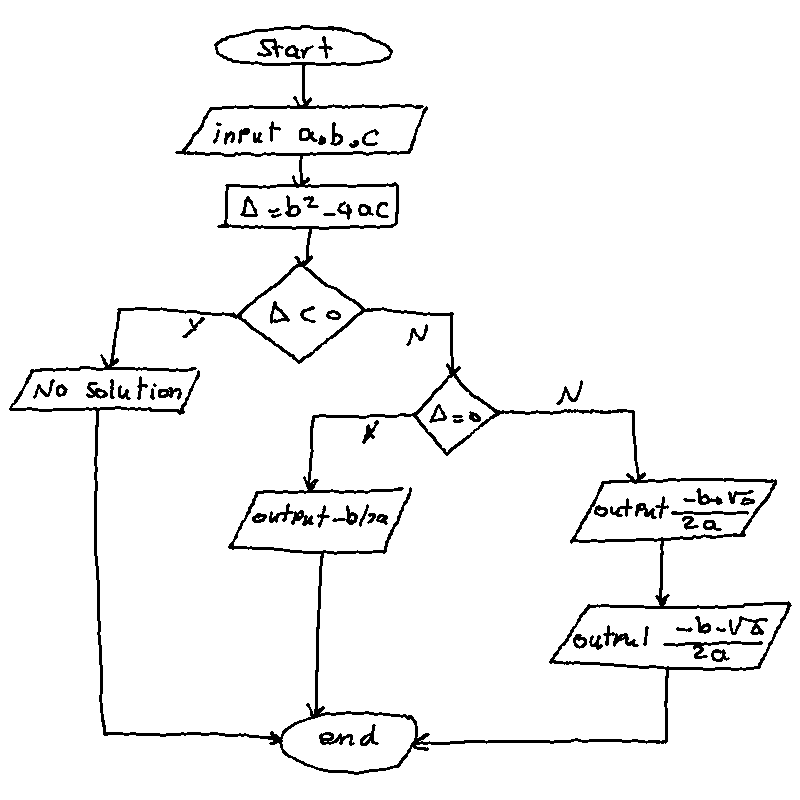 start
input a,b,c
Δ=b²-4ac
Δ<0
Y
N
No solution
Δ=0
Y
N
output -b/2a
output -b+√Δ/2a
output -b-√Δ/2a
end